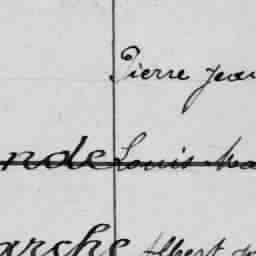 Pierre Jean
nde Louis Ma
arche Albert